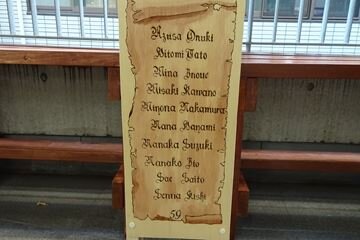 Azusa Onuki
Hitomi Sato
Nina Inoue
Misaki Kawano
Minona Nakamura
Nana Nanami
Manaka Suzuki
Nanako Ito
Sae Saito
Senna Kishi
59